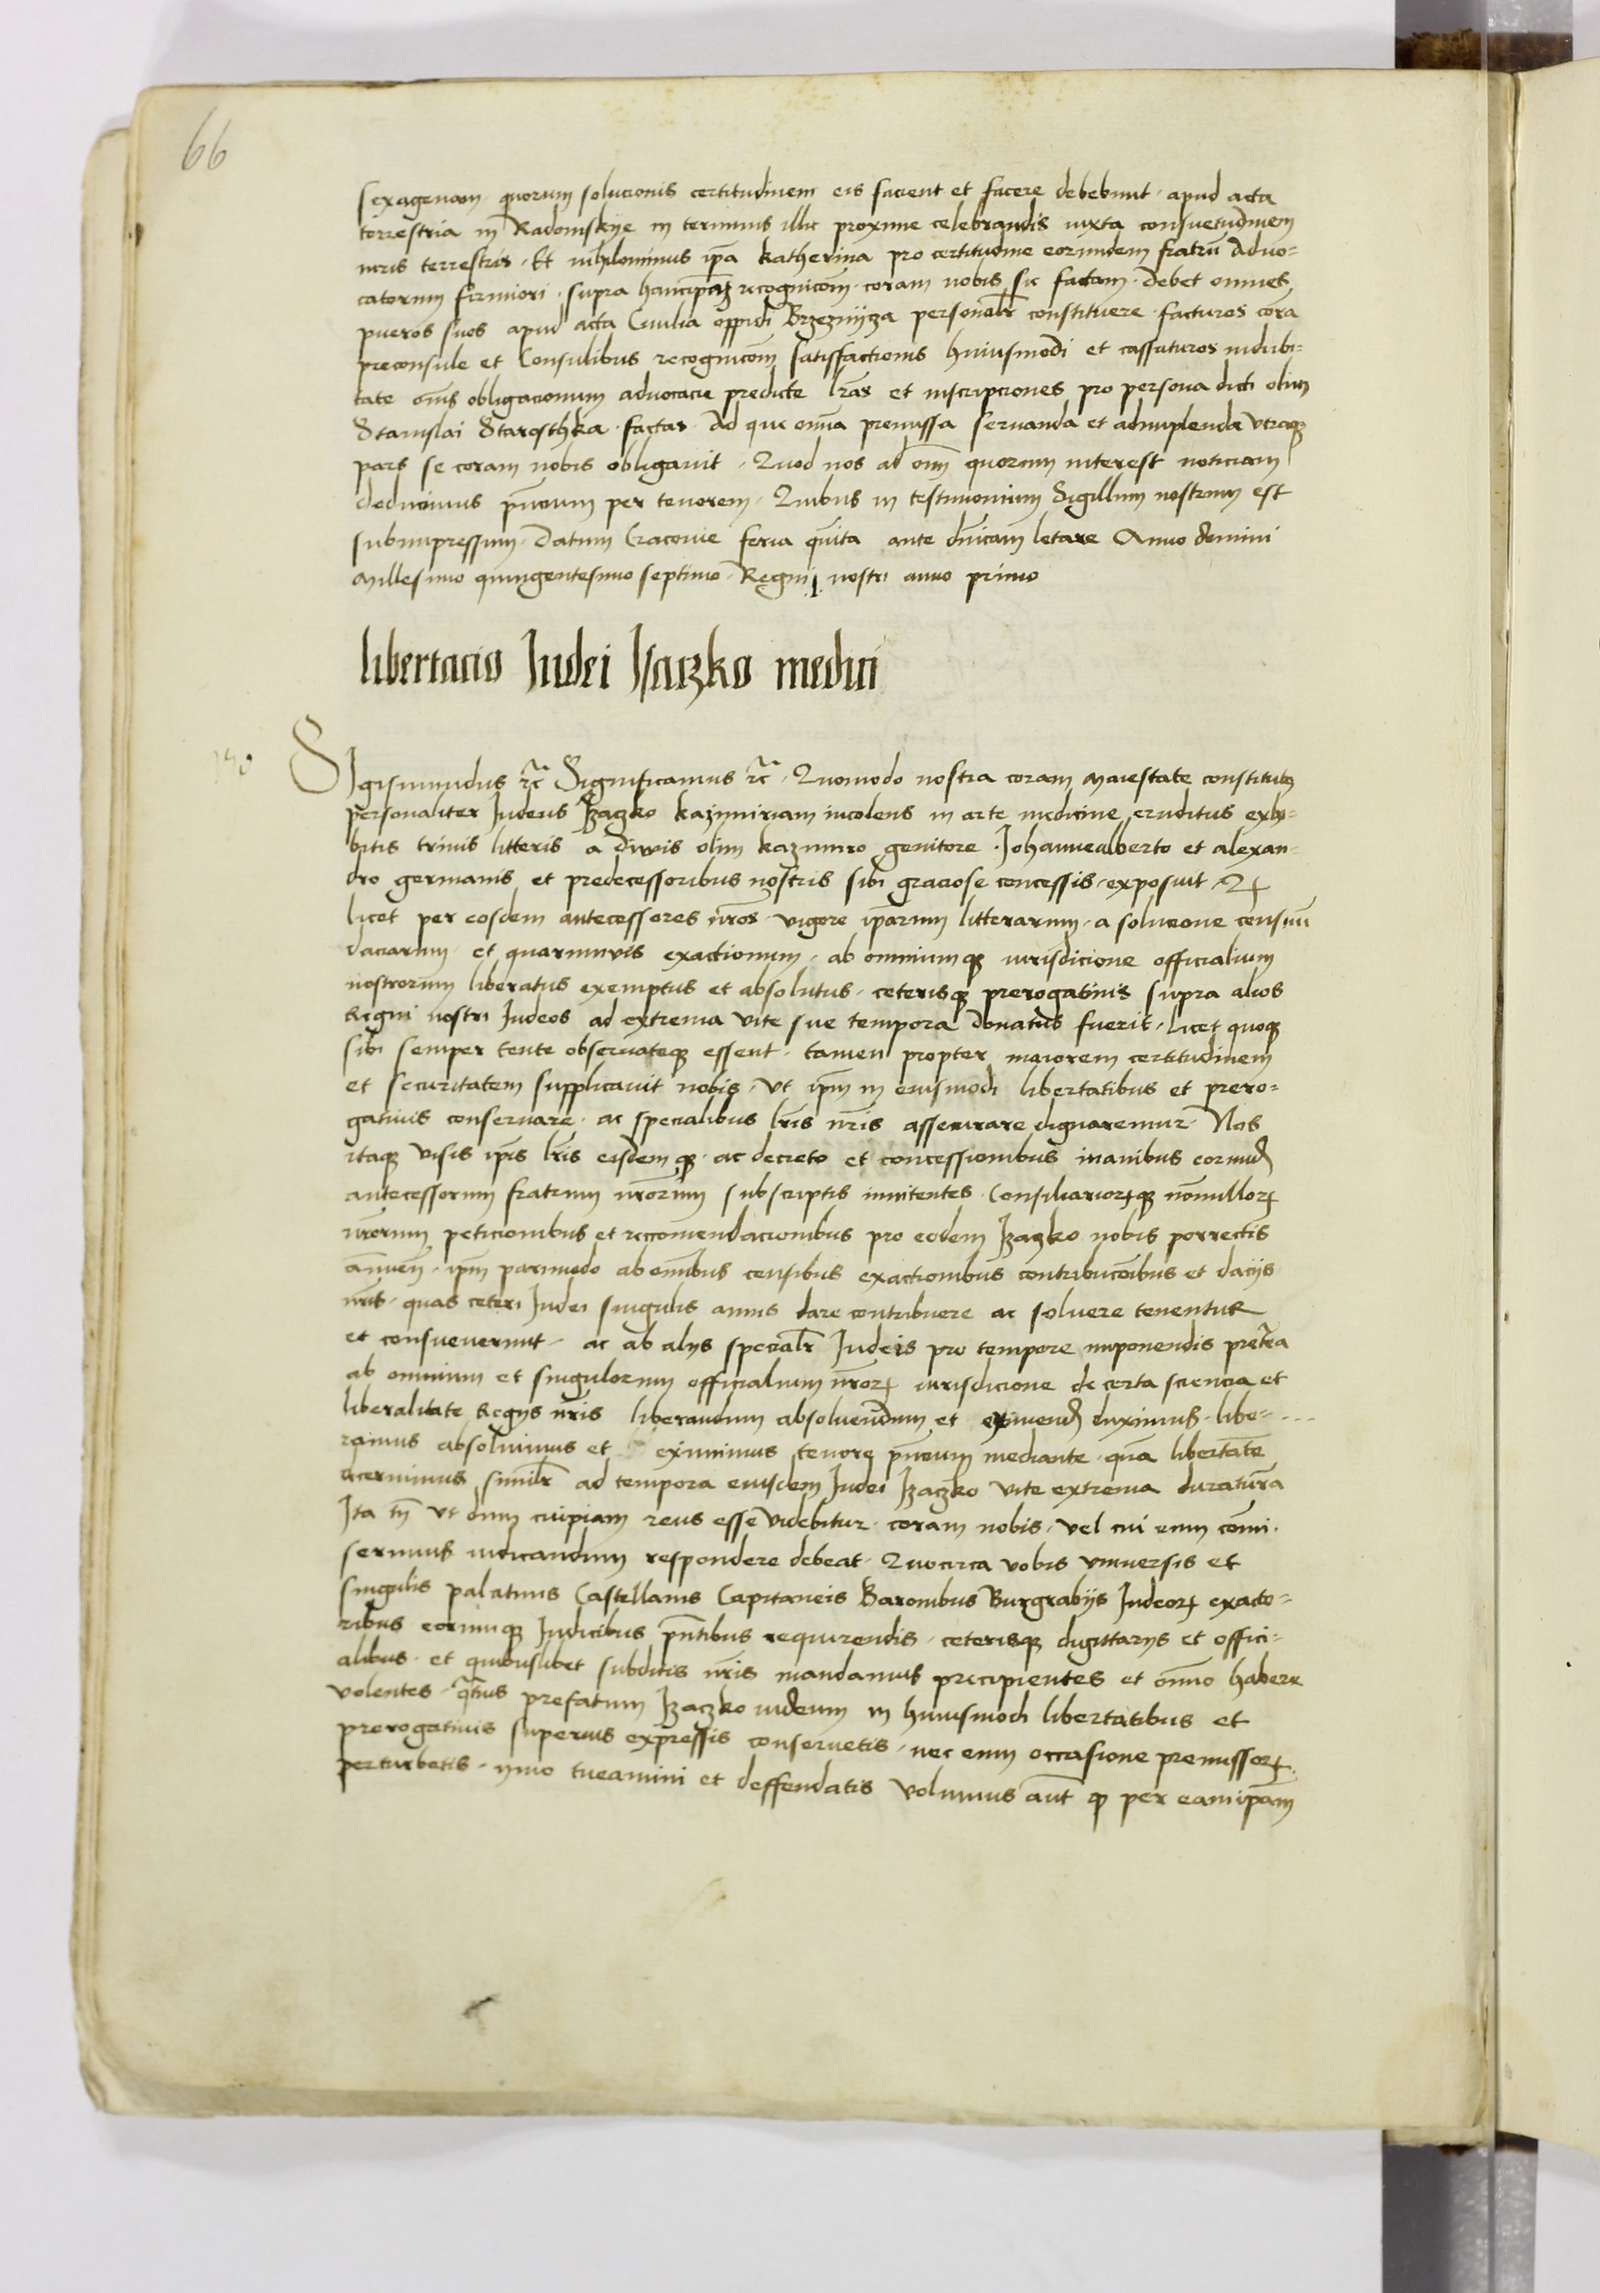 66
sexagenam quorum solucionis certitudinem eis facient et facere debebunt · apud acta
terrestria in Radomskye in terminis illic proxime celebrandis iuxta consuetudinem
iuris terrestris · Et nihilominus ip̄a Katherina pro certitudine eorundem fratrū Advo-
catorum firmiori · supra hanc recognicōm · coram nobis sic factam · debet omnes
pueros suos apud acta Civilia oppidi Brzeznycza personalr̄ constituere · facturos corā
preconsule et Consulibus recognicōm satisfactionis huiusmodi et cassaturos indubi-
tate om̄s obligacionum advocacie predicte lr̄as et inscripciones pro persona dicti olim
Stanislai Starosthka · factas · Ad que om̄ia premissa servanda et adimplenda vtraqꝫ
pars se coram nobis obligavit · Quod nos ad om̄m quorum interest noticiam
deducimus p̄ncium per tenorem · Quibus in testimonium Sigillum nostrum est
subimpressum · Datum Cracovie feria quīta ante dn̄icam letare Anno domini
Millesimo quingentesimo septimo · Regni nostri anno primo
libertacio Iudei Isaczko medici
Sigismundus ꝛc̄ Significamus ꝛc̄ · Quomodo nostra coram Maiestate constitutus
personaliter Iudeus Izaczko kazimiriam incolens in arte medicine eruditus exhi-
bitis trinis litteris a divis olim kazimiro genitore · Iohannealberto et alexan-
dro germanis et predecessoribus nostris sibi graciose concessis · exposuit · Qꝫ
licet per eosdem antecessores nr̄os · vigore ip̄arum litterarum · a soluc̄one censuū
daciarum et quarumvis exactionum · ab omniumqꝫ iurisdicione officialium
nostrorum liberatus exemptus et absolutus · ceterisqꝫ prerogativis supra alios
Regni nostri Iudeos ad extrema vite sue tempora donatus fuerit · licet quoqꝫ
sibi semper tente observateqꝫ essent · tamen propter maiorem certitudinem
et securitatem supplicavit nobis · vt ip̄m in eiusmodi libertatibus et prero-
gativis conservare · ac specialibus lr̄is nr̄is assecurare dignaremur · Nos
itaqꝫ visis ip̄is lr̄is eisdemqꝫ · ac decreto et concessionibus manibus eorund̄
antecessorum fratrum nr̄orum subscriptis innitentes · Consiliarioꝝqꝫ nōnulloꝝ
nr̄orum peticionibus et recomendacionibus pro eodem Izaczko nobis porrectis
ānuen̄ · ip̄m parimodo ab om̄ibus censibus exactionibus contribucōibus et daciis
nr̄is · quas ceteri Iudei singulis annis dare contribuere ac solvere tenentur
et consueverunt · ac ab alys specialr̄ Iudeis pro tempore imponendis pretea
ab omnium et singulorum officialium nr̄oꝝ iurisdicione de certa sciencia et
liberalitate Regys nr̄is liberandum absolvendum et eximend̄ duximus · libe-
ramus absolvimus et eximimus tenore p̄ncium mediante · quā libertatē
decernimus similr̄ ad tempora eiusdem Iudei Izaczko vite extrema duraturā
Ita tn̄ vt dum cuipiam reus esse videbitur · coram nobis · vel cui eum comi-
serimus iudicandum respondere debeat · Quocirca vobis vniversis et
singulis palatinis Castellanis Capitaneis Baronibus Burgrabiis Iudeoꝝ exacto-
ribus eorumqꝫ Iudicibus p̄ntibus requirendis · ceterisqꝫ dignitarys et offici-
alibus · et quibuslibet subditis nr̄is mandamus precipientes et om̄ino habere
volentes · q̄tenus prefatum Izaczko iudeum in huiusmodi libertatibus et
prerogativis superius expressis conservetis · nec eum occasione premissoꝝ
perturbetis · ymo tueamini et deffendatis volumus aūt qꝫ per eamip̄am